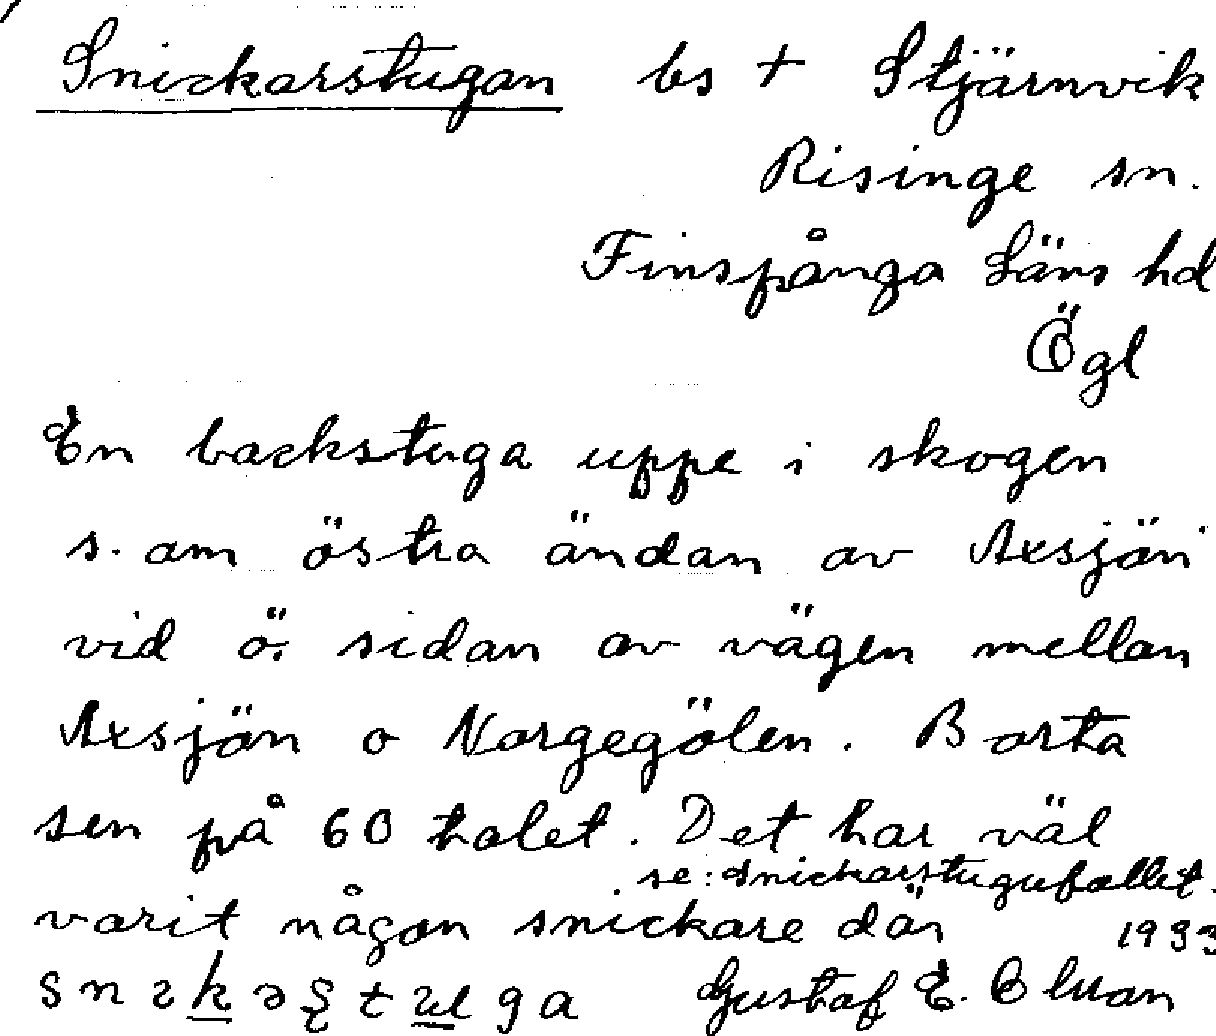 Snickarstugan bs + Stjärnvik
Risinge sn.
Finspånga Läns hd
Ögl
En backstuga uppe i skogen
s. om östra ändan av Axsjön
vid ö. sidan av vägen mellan
Axsjön o Norgegölen. Borta
sen på 60 talet. Det har väl
se: Snickarstugufallet.
varit någon snickare där
1933
Gustaf E.